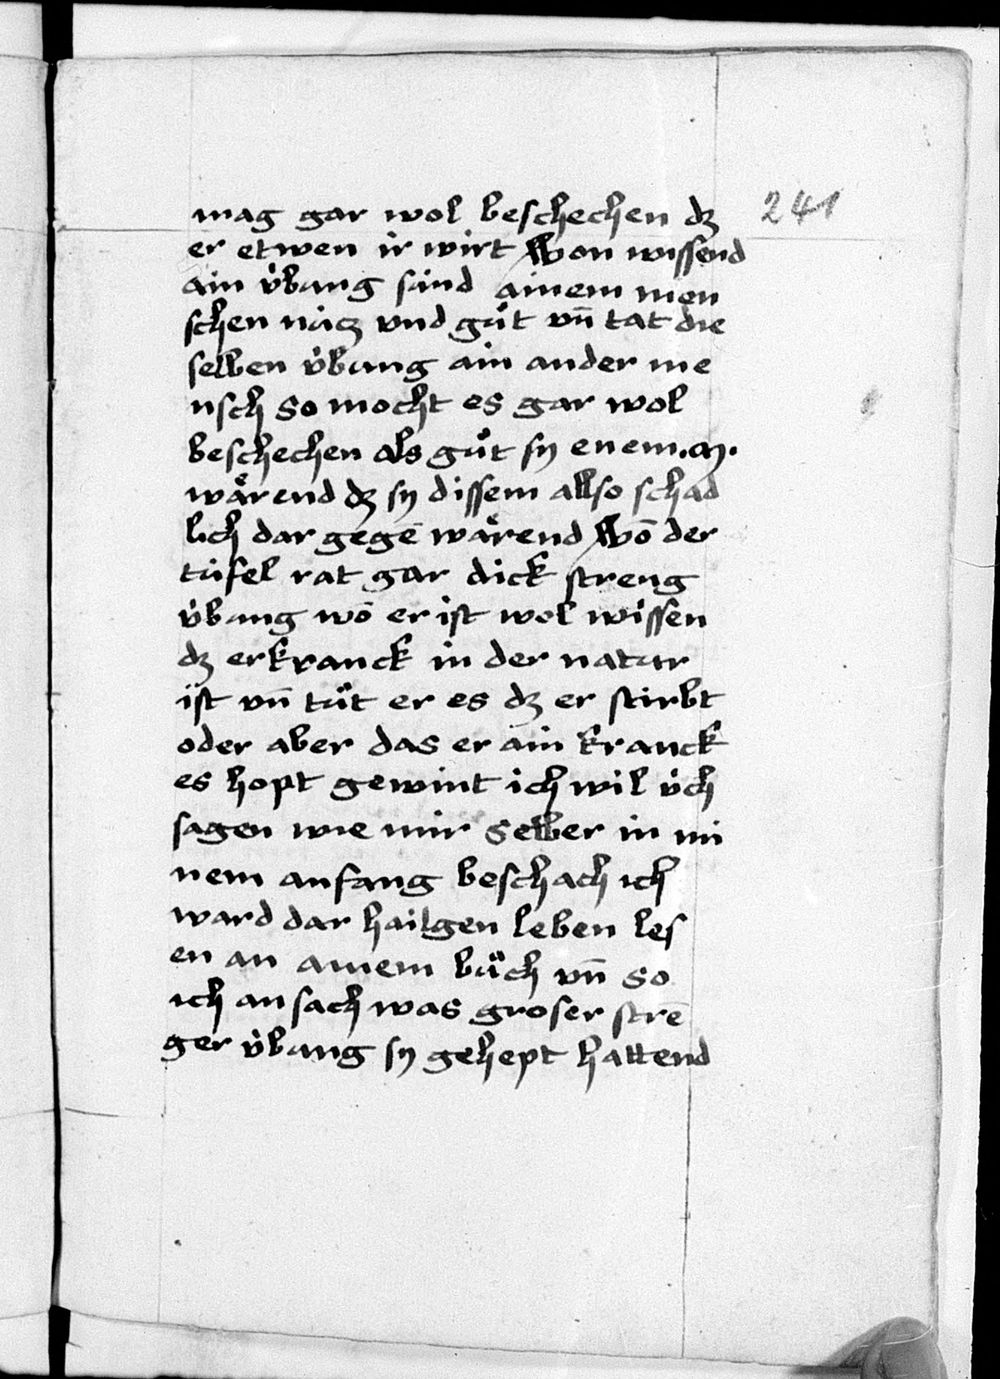 mag gar wol beschechen dz 241
er etwen ir wirt Won wissend
ain v́bung sind ainem men
schen nücz vnd gůt vn̄ tat die
selben v́bung ain ander me
nsch so mocht es gar wol
beschechen als gůt sy enem .m.
wårend dz sy dissem allso schad
lich dar gegē wårend Wō der
túfel rat gar dick streng
v́bung wō er ist wol wissen
dz er kranck in der natur
ist vn̄ tůt er es dz er stirbt
oder aber das er ain kranck
es hopt gewint ich wil v́ch
sagen wie mir selber in mi
nem anfang beschach ich
ward dar hailgen leben les
en an ainem bůch vn̄ so
ich an sach was groser strē
ger v́bung sy gehept hattend